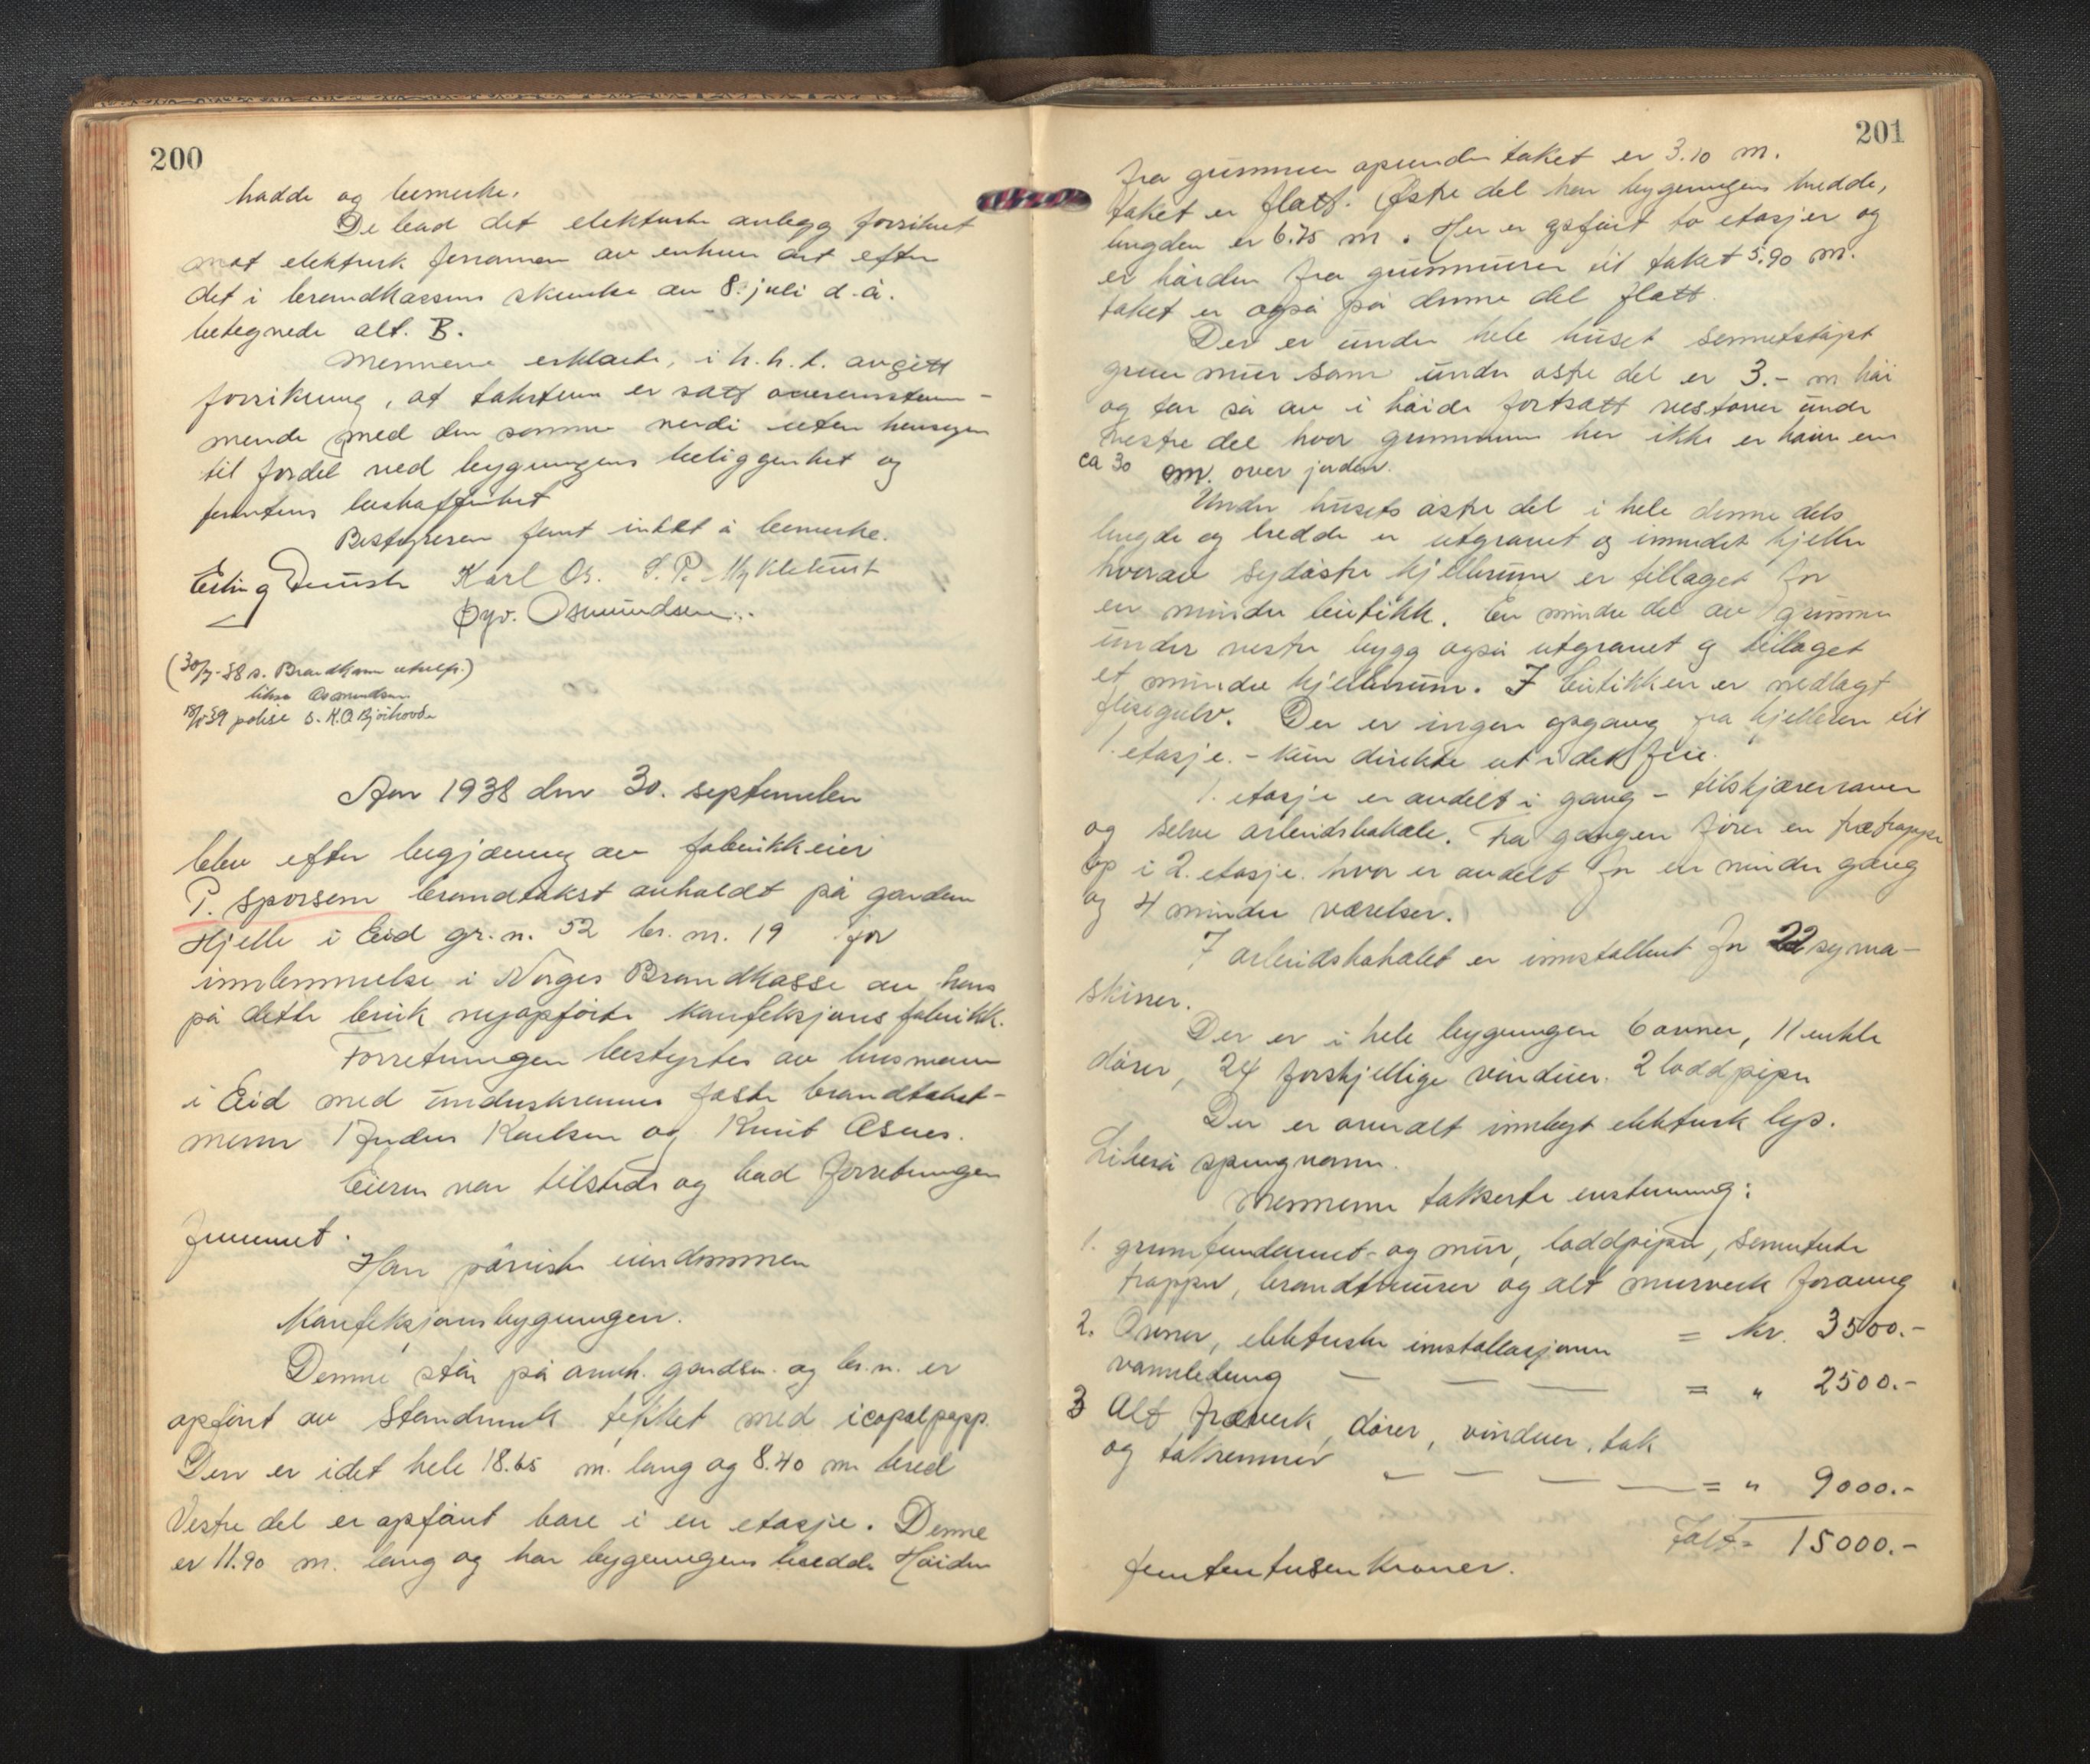 200
hadde og bemerke.
De bad det elektriske anlegg forsikret
mot elektrisk fenomen av enhver art efter
det i brandkassens skrivelse av 8. juli d.å.
betegnede alt. B.
Mennene erklærte, i h.h.t. avgitt
forsikring, at taksten er satt overensstem-
mende med den sanne verdi uten hensyn
til fordel ved bygningens beliggenhet og
tomtens beskaffenhet
Bestyreren fant intet å bemerke.
Erling Karl Os. S. P. Myklebust
Øyv. Osmundsen.
(30/9-38 s. Brandkassen utskr.)
likesa Osmundsen
39 polise s. K.O. Bjørhovde
Aar 1938 den 30. september
blev efter begjæring av fabrikkeier
P. Sporsem brandtakst avholdt på garden
Hjelle i Eid gr.n. 52 br.nr. 19 for
innlemmelse i Norges Brandkasse av hans
på dette bruk nyopførte konfeksjonsfabrikk.
Forretningen bestyrtes av lensmann
i Eid med underskrevne faste brandtakst-
menn Anders Karlsen og Knut Æsnes.
Eieren var tilstede og bad forretningen
fremmet.
Han påviste eiendommen
Konfeksjonsbygningen.
Denne står på anm. gardsn. og br.n. er
opført av standverk tekket med icopalpapp.
Den er i det hele 18.65 m. lang og 8.40 m bred
Vestre del er opført bare i en etasje. Denne
er 11.90 m. lang og har bygningens bredde Høiden
201
fra grunnmur opunder taket er 3.10 m.
taket er flatt. Østre del har bygningens bredde,
lengden er 6.75 m. Her er opført to etasjer og
er høiden fra grunnmuren til taket 5.90 m.
taket er også på denne del flatt.
Der er under hele huset sementstøpt
grunnmur som under østre del er 3.- m høi
og tar så av i høide fortsatt vestover under
vestre del hvor grunnmuren her ikke er høiere enn
ca 30 cm. over jorden.
Under husets østre del i hele denne dels
lengde og bredde er utgravet og innredet kjeller
hvorav sydøstre kjellerrum er tillaget for
en mindre butikk. En mindre del av grunnen
under vestre bygg også utgravet og tillaget
et mindre kjellerrum. I butikken er nedlagt
flisegulv. Der er ingen opgang fra kjelleren til
1. etasje. - kun direkte ut i det fri.
1. etasje er avdelt i gang - tilskjærerrum
og selve arbeidslokale. Fra gangen fører en trætrapp
op i 2. etasje. hvor er avdelt for en mindre gang
og 4 mindre værelser.
I arbeidslokalet er innstallert for 22 syma-
skiner.
Der er i hele bygningen 6 ovner, 11 enkle
dører, 24 forskjellige vinduer. 2 loddpiper
Der er overalt innlagt elektrisk lys.
Likeså springvann.
Mennene takserte enstemmig:
1. grunnfundament og mur, loddpiper, sementerte
trapper, brandmurer og alt murverk forøvrig
= kr. 3500.-
2. Ovner, elektriske innstallasjoner
vannledning — — — = " 2500.-
3 Alt træverk, dører, vinduer, tak
og takrenner — — — — = " 9000.-
Ialt = 15000.-
femtentusen kroner.